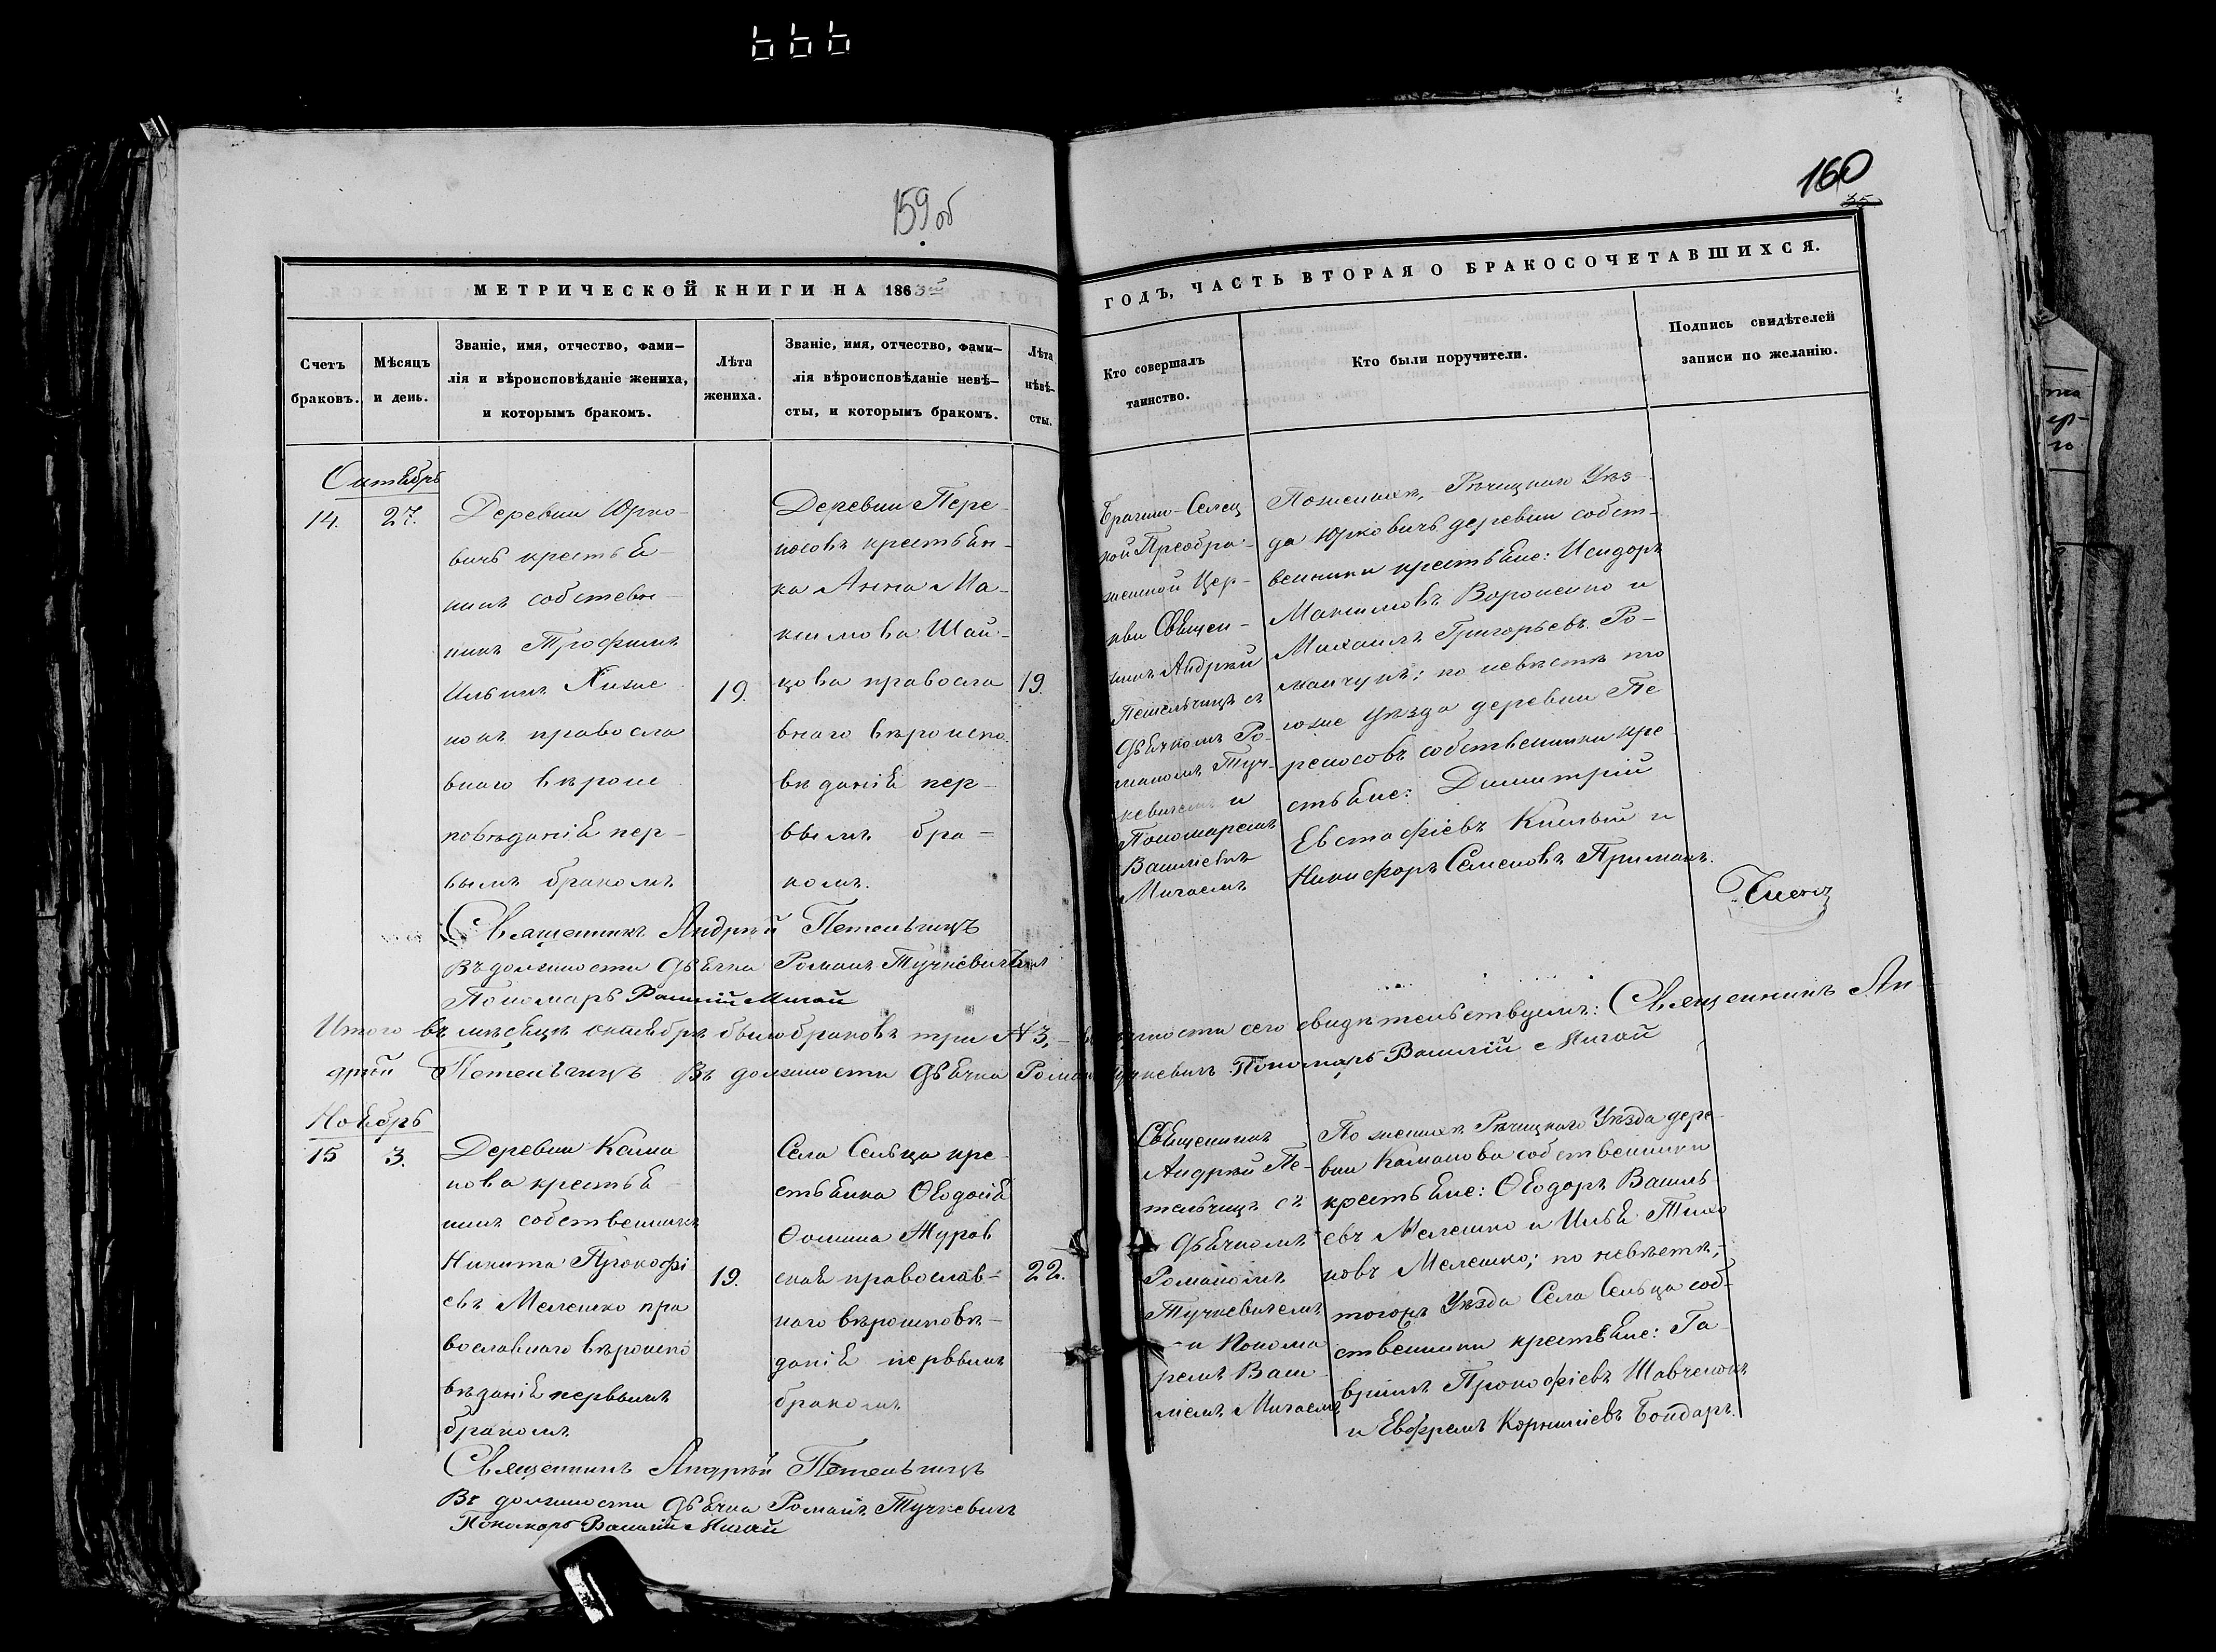 666
159 об
160
35
МЕТРИЧЕСКОЙ КНИГИ НА 1863й
ГОДЪ, ЧАСТЬ ВТОРАЯ О БРАКОСОЧЕТАВШИХСЯ.
Счетъ
браковъ.
Мѣсяцъ
и день.
Званіе, имя, отчество, фами-
лія и вѣроисповѣданіе жениха,
и которымъ бракомъ.
Лѣта
жениха.
Званіе, имя, отчество, фами-
лія вѣроисповѣданіе невѣ-
сты, и которымъ бракомъ.
Лѣта
нѣвѣ-
сты.
Кто совершалъ
таинство.
Кто были поручители.
Подпись свидѣтелей
записи по желанію.
Октябрь
14.
27.
Деревни Юрко-
вичь крестья-
нинъ собствен-
никъ Трофимъ
Ильинъ
нокъ правосла
внаго вѣроис
повѣданія пер-
вымъ бракомъ
19.
Деревни Пере-
носовъ крестьян-
ка Анна Ма-
ксимова Шай-
цова правосла
внаго вѣроиспо-
вѣданія пер-
вымъ бра-
комъ.
19.
Брагино-Селец
кой Преобра-
женской Цер-
кви Священ-
никъ Андрей
Петельчицъ съ
Дьячкомъ Ро-
маномъ Туч-
кевичемъ и
Пономаремъ
Василіемъ
Мигаемъ
По женихѣ, Рѣчицкаго Уѣз-
да Юрковичь деревни собст-
венники крестьяне: Исидоръ
Максимовъ Вороненко и
Михаилъ Григорьевъ Ро-
манчукъ; по невѣстѣ то
гоже Уѣзда деревни Пе
реносовъ собственники кре
стьяне: Димитрій
Евстафіевъ Кислый и
Никифоръ Семеновъ Примакъ.
Священникъ Андрей Петельчицъ
Въ должности Дьячка Романъ Тучкевичъ
Пономарь Василій Мигай
Итого въ мѣсяцѣ октябрѣ было браковъ три №3,- въ вѣрности сего свидѣтельствуемъ: Священникъ Ан
дрей Петельчицъ Въ должности Дьячка Романъ Тучкевичъ Пономарь Василій Мигай
Ноябрь
15
3.
Деревни Кама
нова крестья-
нинъ собственникъ
Никита Прокофі
евъ Мелешко пра
вославнаго вѣроиспо
вѣданія первымъ
бракомъ
19.
Села Сельца кре-
стьянка Ѳеодосія
Ѳомина Журав
ская православ-
наго вѣроисповѣ-
данія первымъ
бракомъ
22.
Священникъ
Андрей Пе-
тельчицъ съ
Дьячкомъ
Романомъ
Тучкевичемъ
и Понома
ремъ Васи-
ліемъ Мигаемъ
По женихѣ Рѣчицкаго Уѣзда дере-
вни Каманова собственники
крестьяне: Ѳеодоръ Василь-
евъ Мелешко и Илья Тихо
новъ Мелешко; по невѣстѣ,
тогожъ Уѣзда Села Сельца соб-
ственники крестьяне: Га-
вріилъ Прокофіевъ Шевченокъ
и Евфремъ Корниліевъ Бондарь.
Священникъ Андрей Петельчицъ
Въ должности Дьячка Романъ Тучкевичъ
Пономарь Василій Мигай